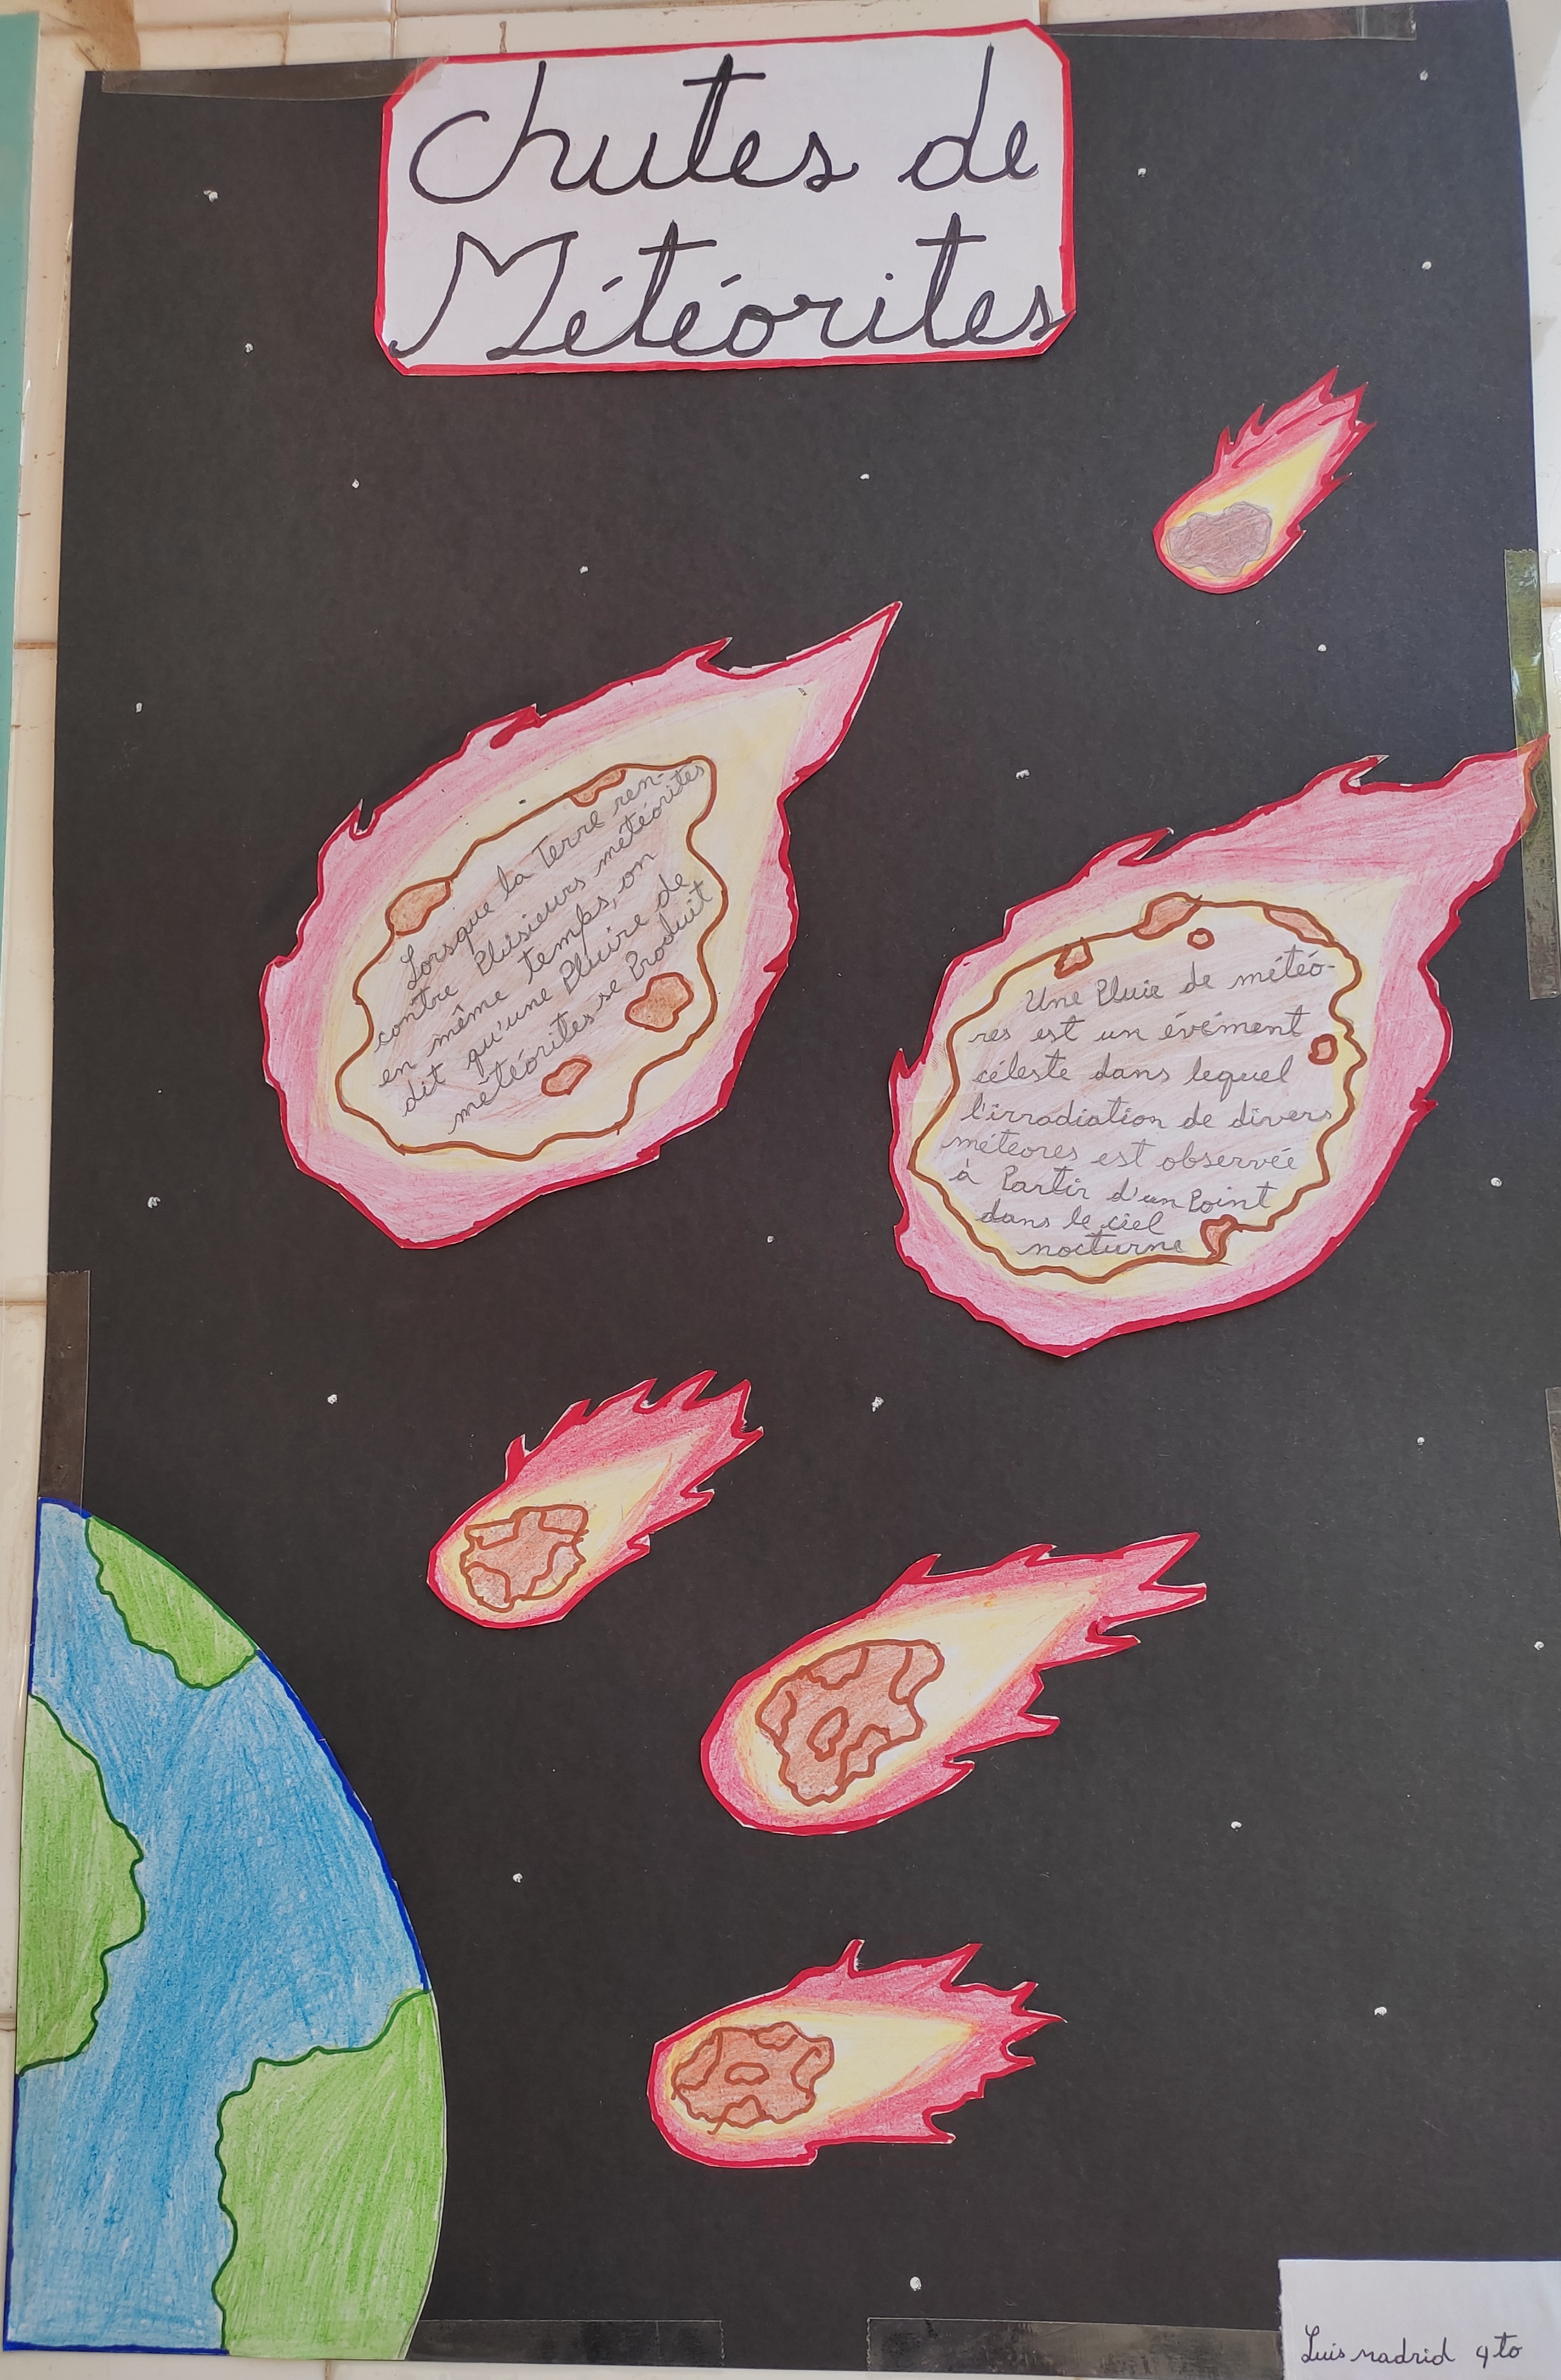 Chutes de
Météorites
Lorsque la Terre ren-
contre Plusieurs météorites
en même temps, on
dit qu'une Pluire de
météorites se Produit
Une Pluie de météo-
res est un évément
céleste dans lequel
l'irradiation de divers
méteores est observée
à Partir d'un Point
dans le ciel
nocturne
Luis madrid 4to